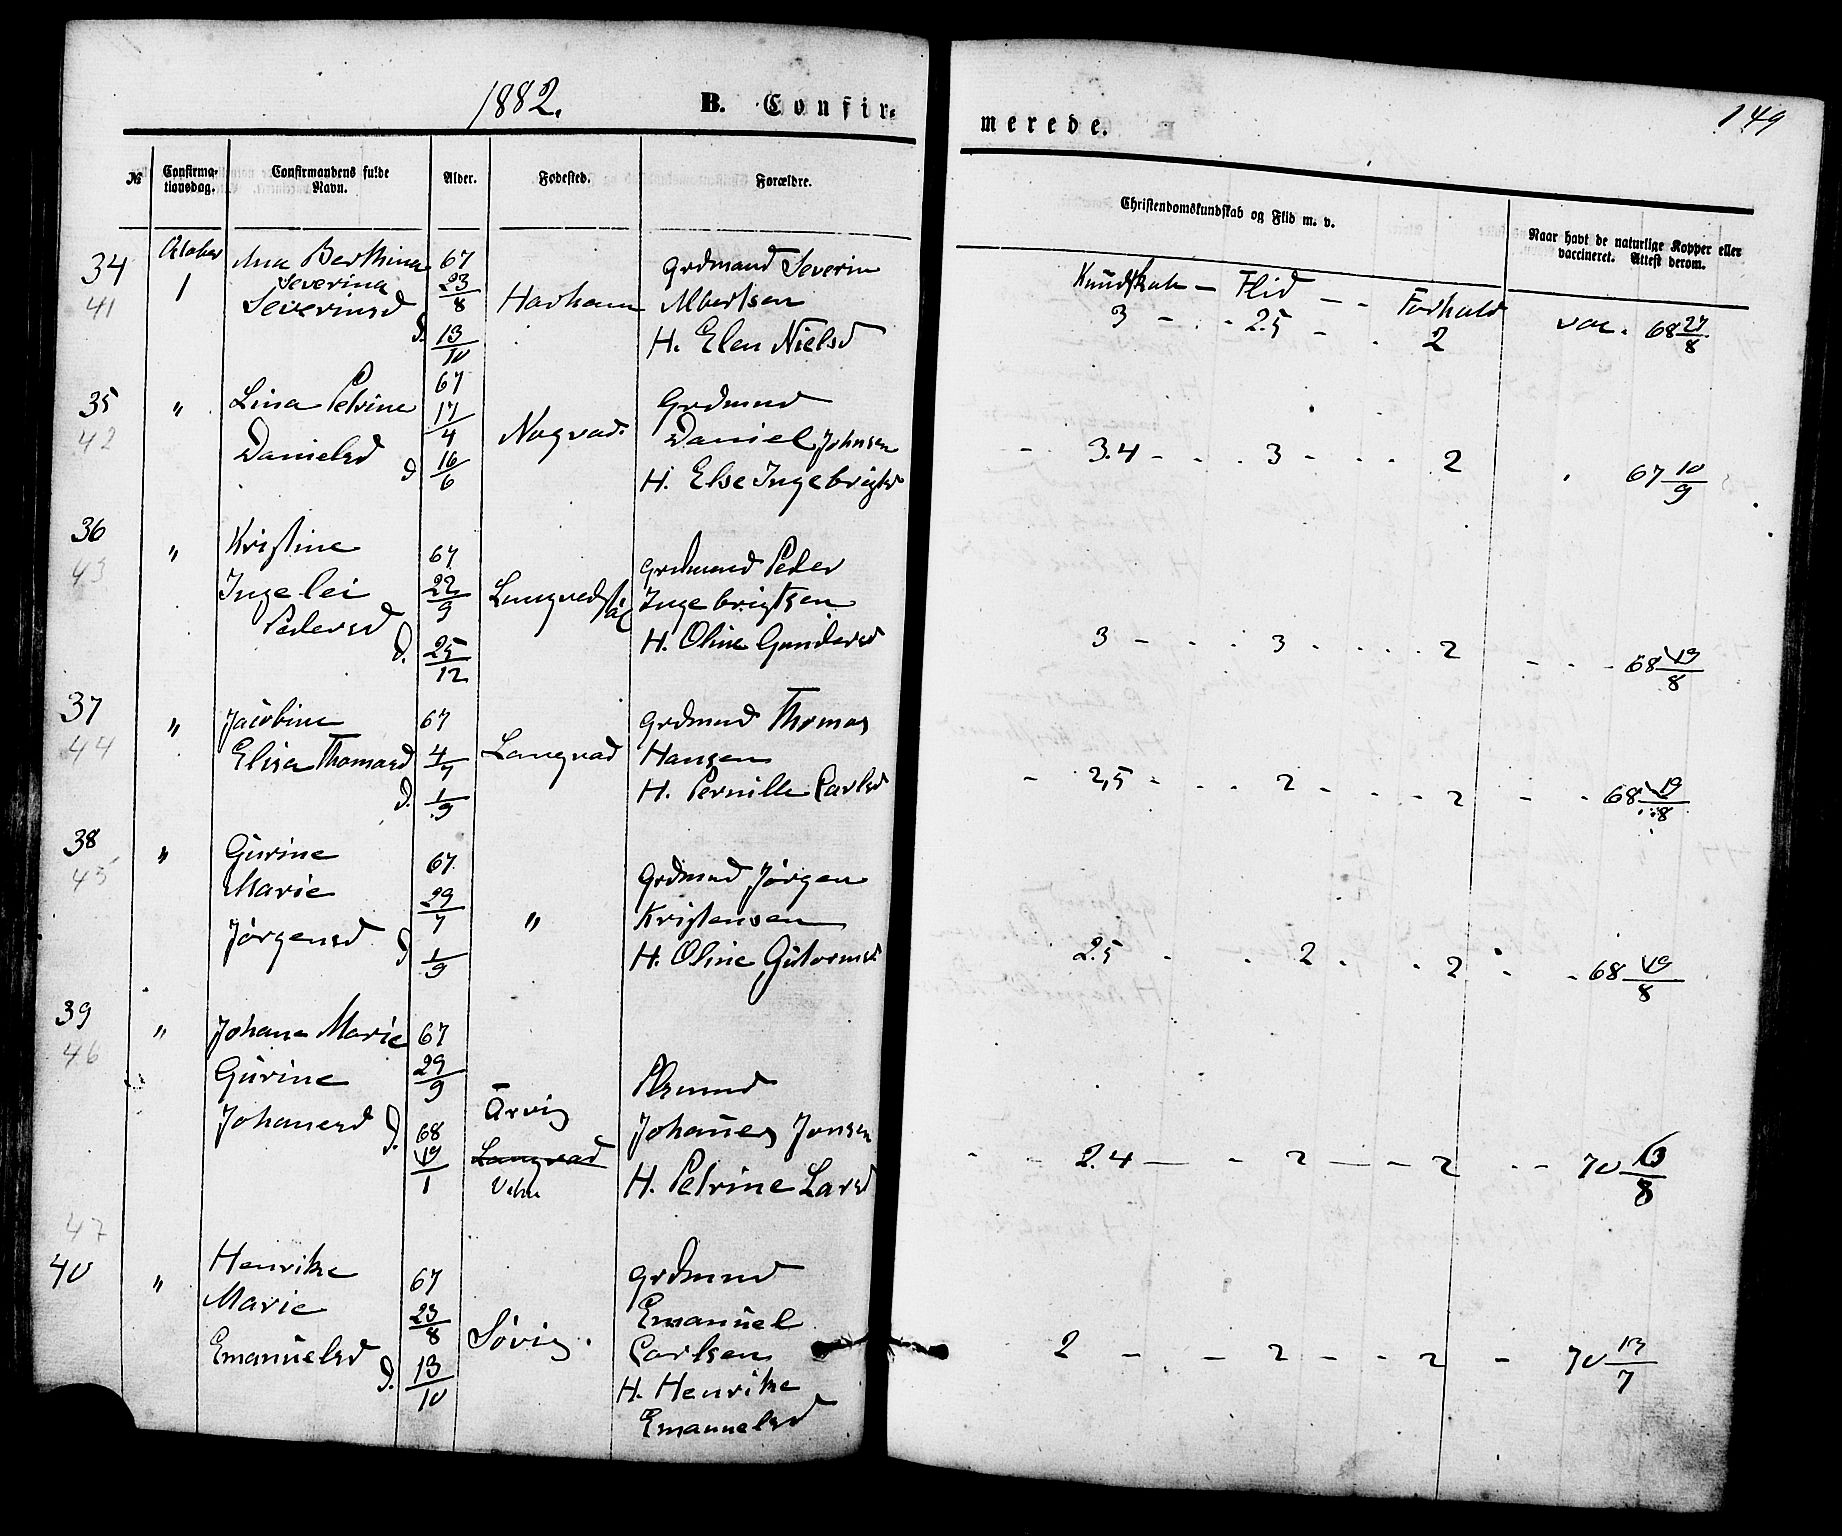 1882.
B. Confir-
merede.
149
№
Confirma-
tionsdag.
Confirmandens fulde
Navn.
Alder.
Fødested.
Forældre.
Christendomskundskab og Flid m. v.
Naar havt de naturlige Kopper eller
vaccineret. Attest derom.
Kundskab - Flid - - Forhold
34
41
October
1
Ana Berthina
Severina
Severinsd
67
23/8
d. 13/10
Havham
Grdmand Severin
Albertsen
H. Elen Nielsd
3 - - 2.5 - - 2
vac. 68 27/8
35
42
"
Lina Petrine
Danielsd
67
17/4
d 16/6
Nogvad
Grdmnd
Daniel Johnsen
H. Else Ingebrigtsd
- 3.4 - - 3 - - - 2
67 10/9
36
43
"
Kristine
Ingelei
Pedersd
67
22/9
d. 25/12
Grdmand Peder
Ingebrigtsen
H. Oline Gundersd
3 - - 3 - - - 2
- - - 68 19/8
37
44
"
Jacobine
Elisa Thomasd
67
4/7
d. 1/9
Langvad
Grdmnd Thomas
Hansen
H. Pernille Carlsd
- 2,5 - - - 2 - - - 2
- - 68 19/8
38
45
"
Gurine
Marie
Jørgensd
67
29/7
d 1/9
"
Grdmnd Jørgen
Kristensen
H. Oline Gutormsd
2.5 - - 2 - - 2
- - 68 19/8
39
46
"
Johane Marie
Gurine
Johanesd
67
29/9
d. 68
19/1
Arvig
Langvad
Plsmnd
Johanes Jonsen
H. Petrine Larsd
- - 2.4 - - 2 - - 2
- - 70 13/8
47
40
"
Henrikke
Marie
Emanuelsd
67
23/8
d. 13/10
Søvig.
Grdmnd
Emanuel
Carlsen
H. Henrikke
Emanuelsd
2 - - 2 - - 2
- 70 13/7